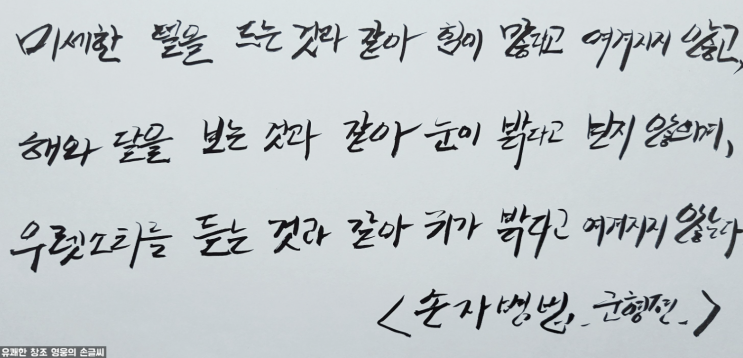 미세한 털을 드는 것과 같아 힘이 많다고 여겨지지 않고,
해와 달을 보는 것과 같아 눈이 밝다고 받지 않으며,
우렛소리를 듣는 것과 같아 귀가 밝다고 여겨지지 않는다
<손자병법, 군형편>
유쾌한 창조 영웅의 손글씨